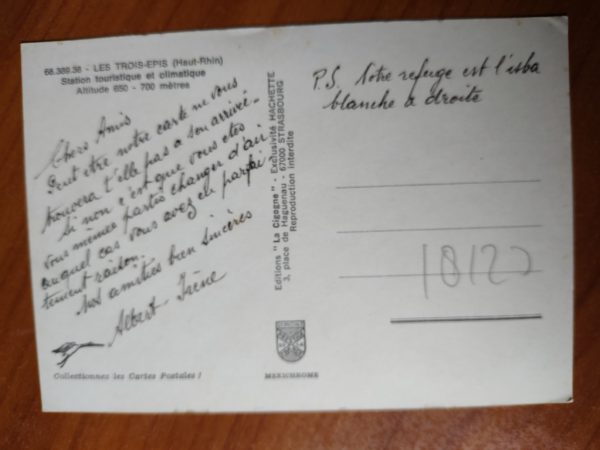 68.389.36 - LES TROIS-EPIS (Haut-Rhin)
Station touristique et climatique
Altitude 650 - 700 mètres
Chers Amis
Peut être notre carte ne vous
trouvera t'elle pas a son arrivée.
Si non c'est que vous etes
vous mêmes partis changer d'air
auquel cas vous avez eu parfai
tement raison.
Nos amitiés bien sincères
Albert - Irène
Collectionnez les Cartes Postales !
Editions "La Cigogne" - Exclusivité HACHETTE
3, place de Haguenau - 67000 STRASBOURG
Reproduction interdite
MEXICHROME
P.S. Notre refuge est l'isba
blanche a droite
18122